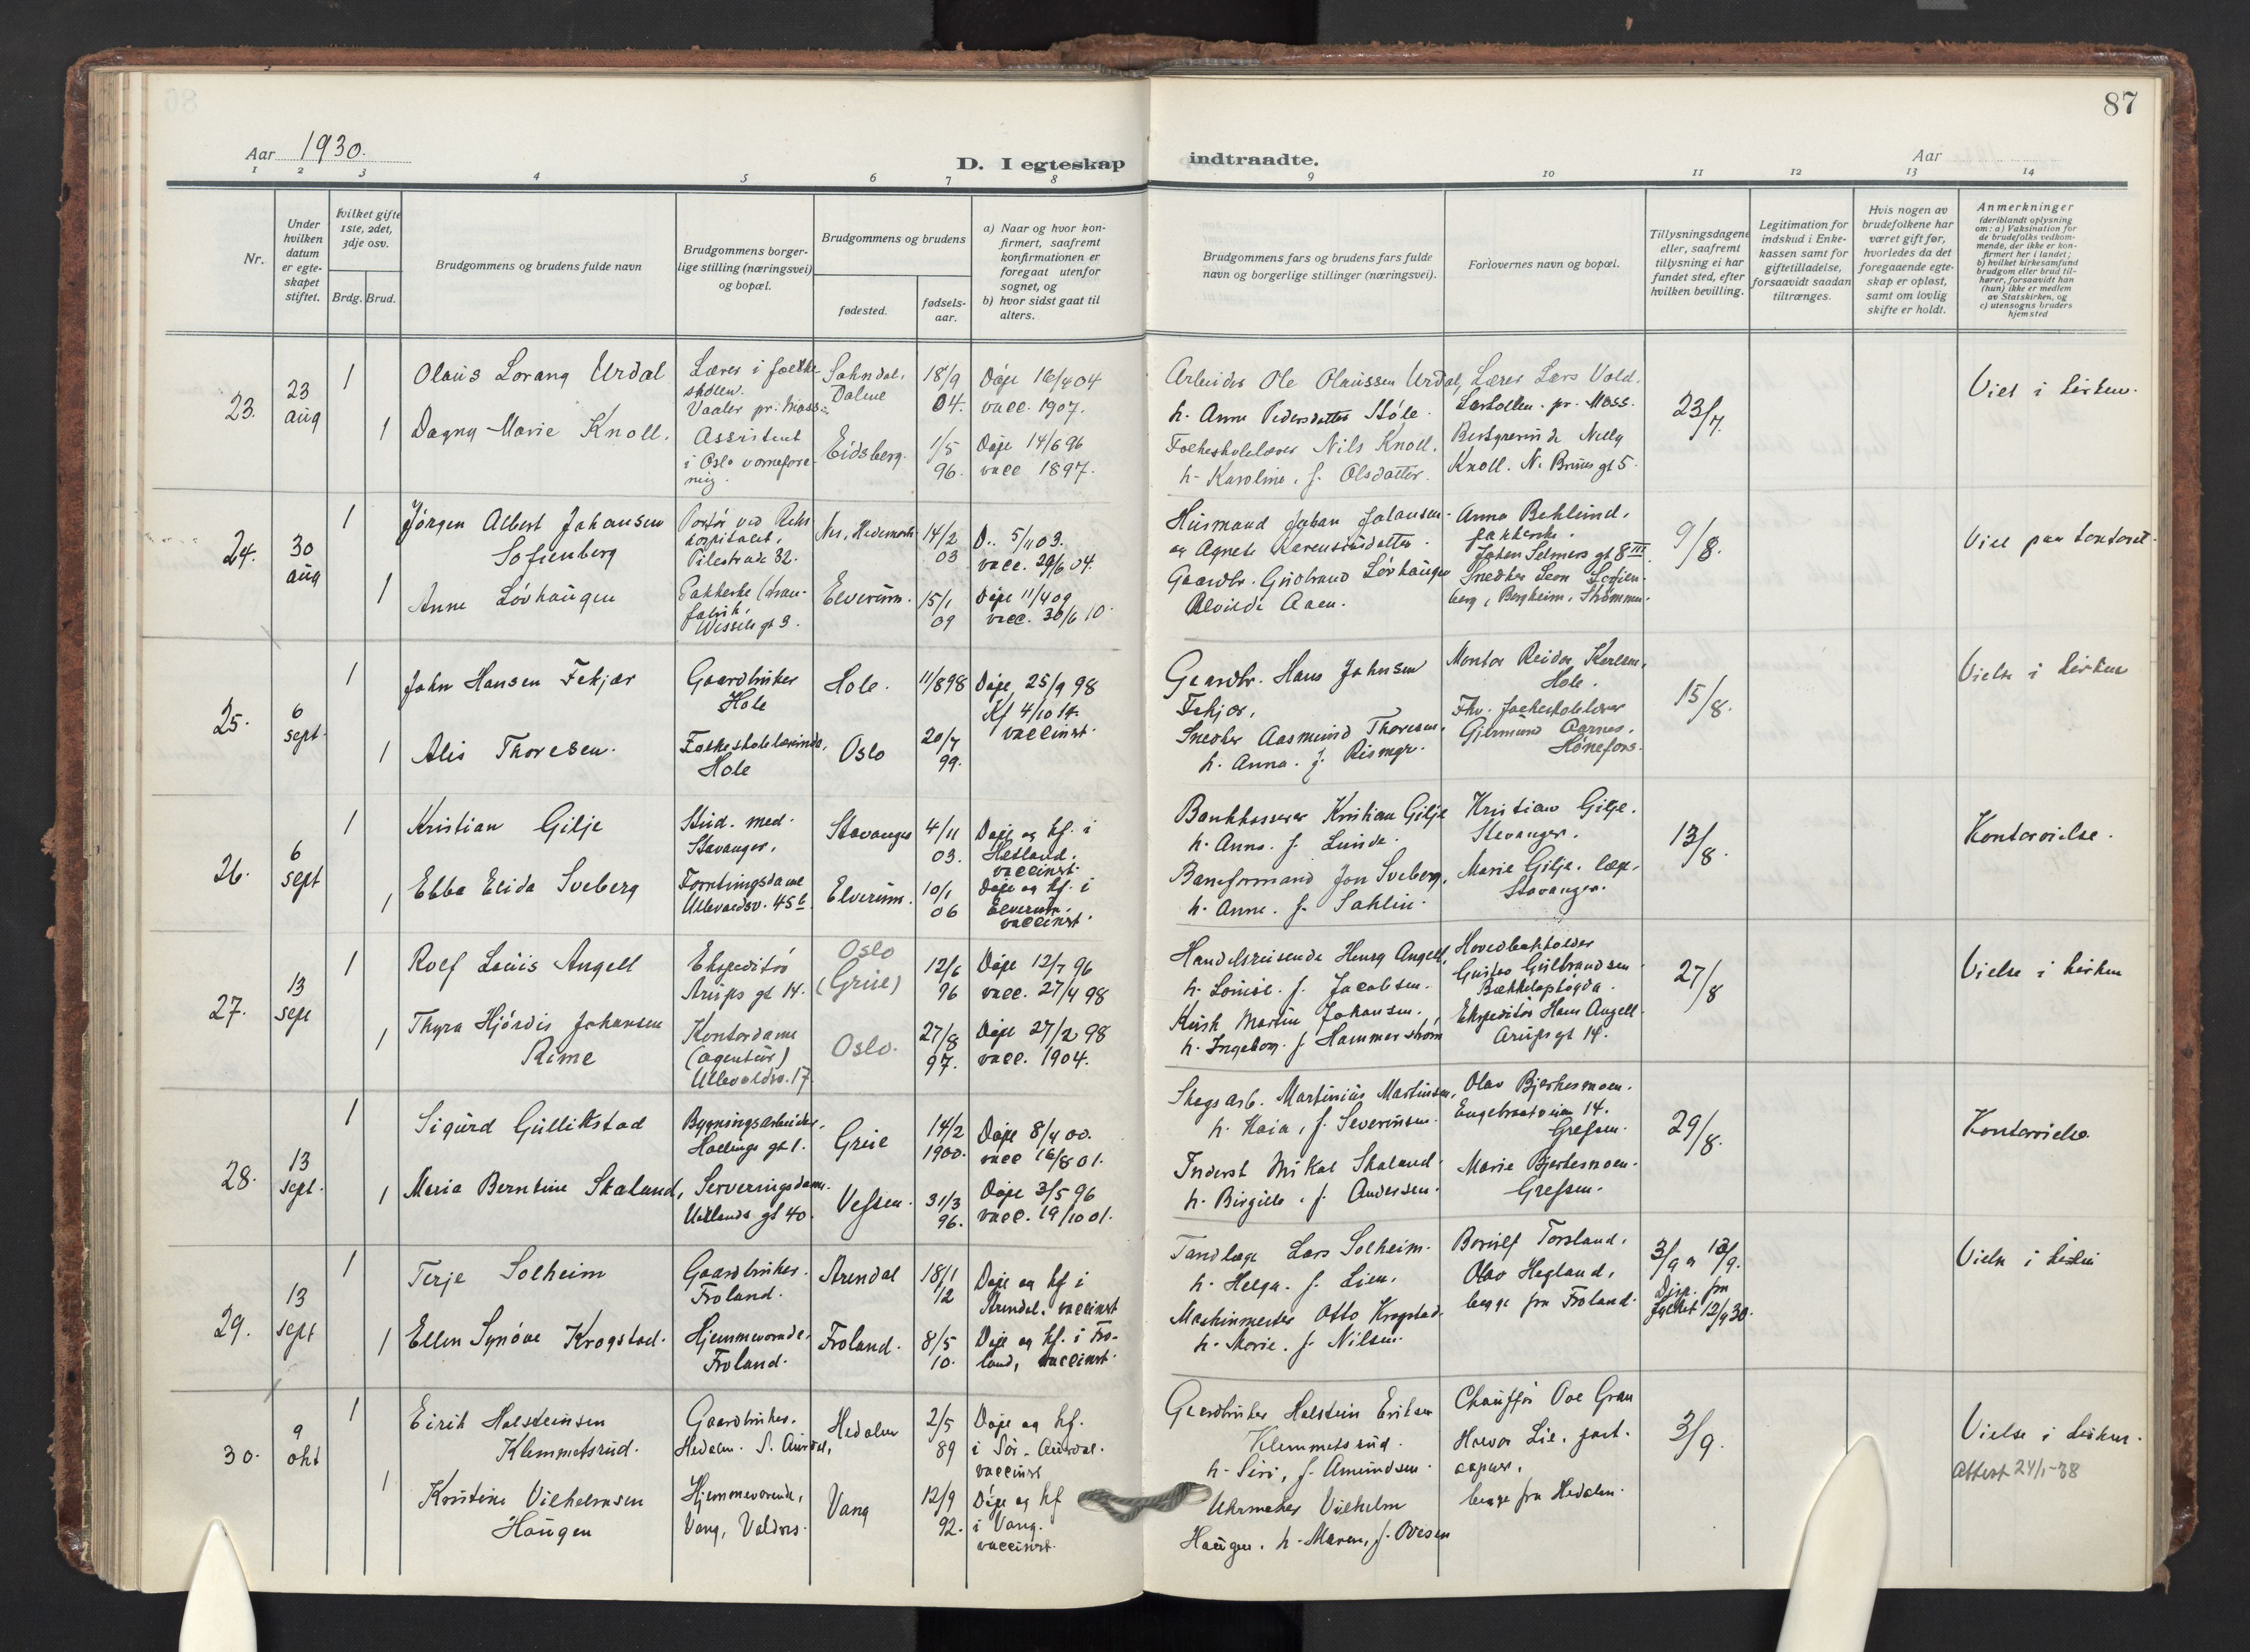 87
Aar 1930.
D. I egteskap
indtraadte.
Aar
1 2 3 4 5 6 7 8 9 10 11 12 13 14
Nr.
Under
hvilken
datum
er egte-
skapet
stiftet.
Hvilket gifte
1ste, 2det,
3dje osv.
Brdg. Brud.
Brudgommens og brudens fulde navn
Brudgommens borger-
lige stilling (næringsvei)
og bopæl.
Brudgommens og brudens
fødested.
fødsels-
aar.
a) Naar og hvor kon-
firmert, saafremt
konfirmationen er
foregaat utenfor
sognet, og
b) hvor sidst gaat til
alters.
Brudgommens fars og brudens fars fulde
navn og borgerlige stillinger (næringsvei).
Forlovernes navn og bopæl.
Tillysningsdagene
eller, saafremt
tillysning ei har
fundet sted, efter
hvilken bevilling.
Legitimation for
indskud i Enke-
kassen samt for
giftetilladelse,
forsaavidt saadan
tiltrænges.
Hvis nogen av
brudefolkene har
været gift før,
hvorledes da det
foregaaende egte-
skap er opløst,
samt om lovlig
skifte er holdt.
Anmerkninger
(deriblandt oplysning
om: a) Vaksination for
de brudefolks vedkom-
mende, der ikke er kon-
firmert her i landet;
b) hvilket kirkesamfund
brudgom eller brud til-
hører, forsaavidt han
(hun) ikke er medlem
av Statskirken, og
c) utensogns bruders
hjemsted
23.
23
aug
1
Olaus Lorang Urdal
Lærer i folke-
skolen.
Vaaler pr. Moss.
18/9
04.
Døpt 16/4 04
vacc. 1907.
Arbeider Ole Olaussen Urdal,
h. Anne Pedersdatter Støle.
Lærer Lars Vold.
pr. Moss.
23/7.
Viet i kirken.
1
Dagny-Marie Knoll.
Assistent
i Oslo vernefore-
ning.
Eidsberg.
1/5
96.
Døpt 14/6 96
vacc 1897.
Folkeskolelærer Nils Knoll.
h. Karoline, f. Olsdatter.
Bestyrerinde Nelly
Knoll. N. Bruns gt 5.
24.
30
aug
1
Jørgen Albert Johansen
Sofienberg
Portør ved Riks
hospitalet,
Pilestrædet 32.
Nes, Hedemark
14/2
03
D.. 5/11 03.
vacc. 29/6 04.
Husmand Johan Johansen
og Agnete Larentsiusdatter.
Anna Behlund,
pakkerske.
Johan Selmers gt 8 III
9/8.
Viet paa kontoret.
1
Anne Løvhaugen
Pakkerske
fabrik,
Wessels gt 3.
Elverum.
15/1
09
Døpt 11/4 09
vacc. 30/6 10.
Gaardbr. Gudbrand Løvhaugen
Alvilde Aaen.
Snedker Leon Sofien-
berg, Bergheim, Strømmen.
25.
6
sept.
1
John Hansen Fekjær
Gaardbruker
Hole
Hole.
11/8 98
Døpt 25/9 98
Kf 4/10 14.
vaccinert.
Gaardbr. Hans Johnsen
Fekjær,
Montør Reidar Karlsen,
Hole.
15/8.
Vielse i kirken
1
Alis Thoresen.
Folkeskolelærerinde,
Hole
Oslo
20/7
99.
Snedker Aasmund Thoresen,
h. Anna. f. Rismyr.
Fhv. folkeskolelærer
Gilmund Aarnes,
Hønefoss.
26.
6
sept
1
Kristian Gilje
Stud. med.
Stavanger.
Stavanger
4/11
03.
Døpt og kf. i
Hetland.
vaccinert.
Bankkasserer Kristian Gilje
h. Anna. f. Lunde.
Kristian Gilje.
Stavanger.
13/8.
Kontorvielse.
1
Ebba Elida Sveberg
Forretningsdame
Ullevaalsv. 45 b.
Elverum.
10/1
06
Døpt og kf. i
Elverum.
vaccinert.
Baneformand Jon Sveberg,
h. Anne. f. Sahlin.
Marie Gilje.
Stavanger.
27.
13
sept
1
Rolf Louis Angell
Ekspeditør
Arups gt 14.
Oslo
(Grue)
12/6
96
Døpt 12/7 96
vacc. 27/4 98
Handelsreisende Henry Angell,
h. Louise. f. Jacobsen.
Hovedbokholder
Gustav Gulbrandsen
Bækkelagshøgda.
27/8
Vielse i kirken
1
Thyra Hjørdis Johansen
Rime
Kontordame
(agentur)
Ullevaalsv. 17.
Oslo.
27/8
97.
Døpt 27/2 98
vacc. 1904.
Kusk Martin Johansen,
h. Ingeborg. f. Hammerstrøm
Ekspeditør Hans Angell
Arups gt 14.
28.
13
sept.
1
Sigurd Gullikstad
Bygningsarbeider,
Hallings gt 1.
Grue
14/2
1900.
Døpt 8/4 00.
vacc 16/8 01.
Skogsarb. Martinius Martinsen,
h. Kaia, f. Severinsen.
Olav Bjerkesmoen.
14.
Grefsen.
29/8.
Kontorvielse.
1
Maria Berntine Skaland,
Serveringsdame.
Uelands gt 40.
Vefsen.
31/3
96.
Døpt 3/5 96
vacc. 19/10 01.
Inderst Mikal Skaland.
h. Birgitte. f. Andersen.
Marie Bjerkesmoen.
Grefsen.
29.
13
sept
1
Terje Solheim
Gaardbruker.
Froland.
Arendal
18/1
12
Døpt og kf i
Arendal. vaccinert
Tandlæge Lars Solheim.
h. Helga. f. Lien.
Torsland,
Olav Hegland,
begge fra Froland.
3/9 og 13/9.
Disp. fra
fylket 12/9 30.
Vielse i kirken
1
Ellen Synøve Krogstad.
Hjemmeværende,
Froland.
Froland.
8/5
10.
Døpt og kf. i Fro-
land, vaccinert.
Maskinmester Otto Krogstad.
h. Marie. f. Nilsen.
30.
9
okt
1
Eirik Halsteinsen
Klemmetsrud.
Gaardbruker.
Hedalen. S. Aurdal,
Hedalen
2/5
89
Døpt og kf.
i Sør-Aurdal.
vaccinert
Gaardbruker Halstein Eriksen
Klemmetsrud.
h. Siri, f. Amundsen.
Chauffør Ove Grau
Halvor Lie, post-
begge fra Hedalen.
3/9.
Vielse i kirken.
Attest 24/1-38
1
Kristine Vilhelmsen
Haugen
Hjemmeværende,
Vang, Valdres.
Vang
12/9
92.
Døpt og kf
i Vang.
vaccinert.
Uhrmaker Vilhelm
Haugen. h. Maren, f. Ovesen